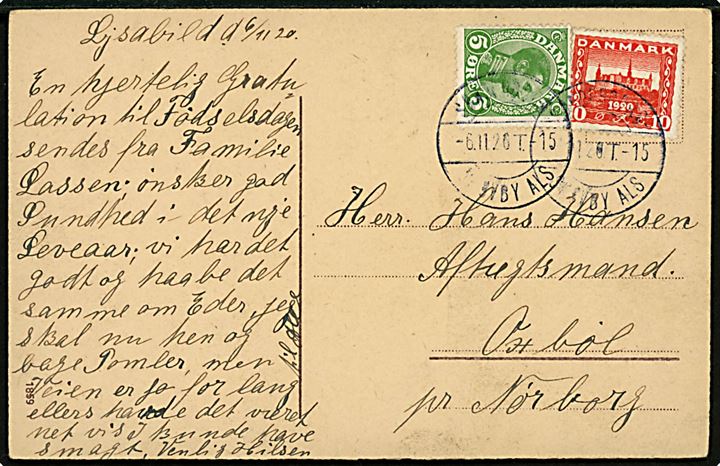 Lysabild d 6/11 20.
En hjertelig Gratu-
lation til Födselsdagen
sendes fra Familie
Lassen; önsker god
Sundhed i det nye
Leveaar; vi har det
godt og haabe det
samme om Eder, jeg
skal nu hen og
bage Pomler, men
Veien er jo for lang
ellers havde det været
net vis I kunde have
smagt, Venlig Hilsen
til
5 ØRE 5
DANMARK
DANMARK
1920
10 ØRE 10
-6.11.20 T.-15
VBY ALS
20 T.-15
VBY ALS
Herr. Hans Hansen
Aftægtsmand.
Oxböl
pr Nörborg
1859